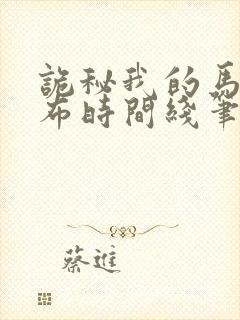 詭秘我的馬
布時間綫筆
蔡進